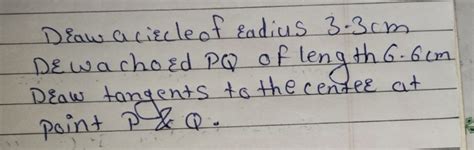 Draw a circle of radius 3.3cm
Drwa chord PQ of length 6.6cm
Draw tangents to the center at
point P & Q.